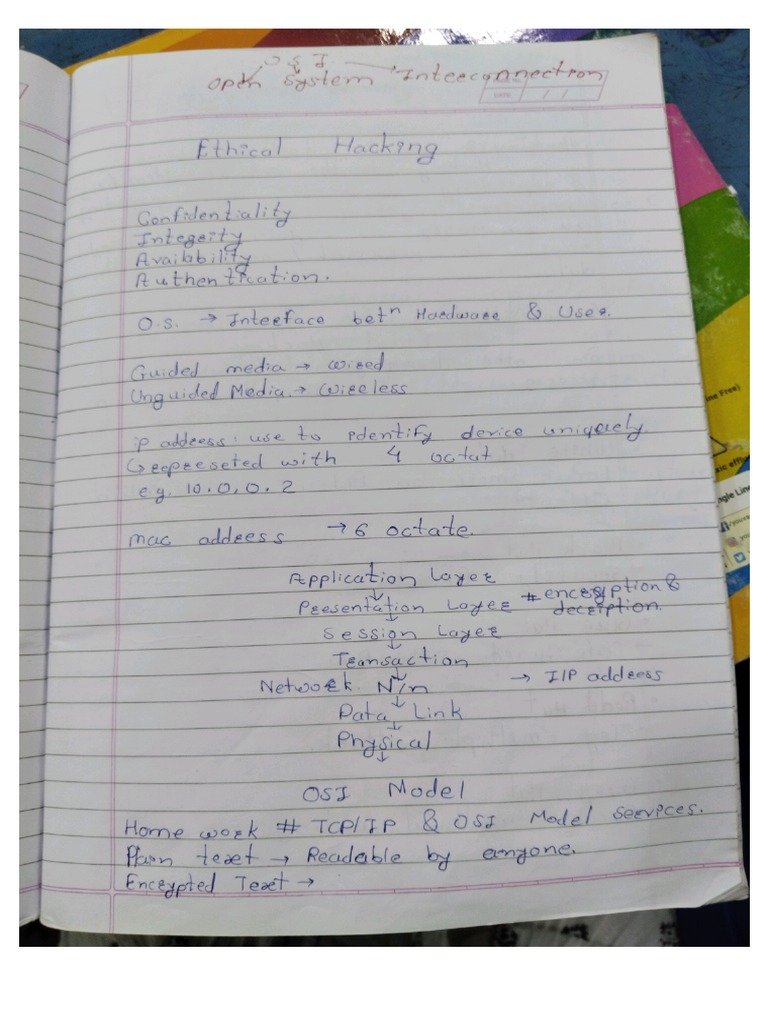 O S I
Open System Interconnection
DATE / /
Ethical Hacking
Confidentiality
Integrity
Availability
Authentication.
O.S. → Interface betn Hardware & User.
Guided media → wired
Unguided Media. → Wireless
ip address: use to identify device uniquely.
↳ represeted with 4 octat
e.g. 10.0.0.2
mac address → 6 octate.
Application Layer
↓
Presentation Layer # encryption & decription.
↓
Session Layer
↓
Transaction
↓
Network N/n → I/P address
↓
Data Link
↓
Physical
↓
OSI Model
Home work # TCP/IP & OSI Model Services.
Plain text → Readable by anyone.
Encrypted Text →
me Free)
xic efflu
ngle Line